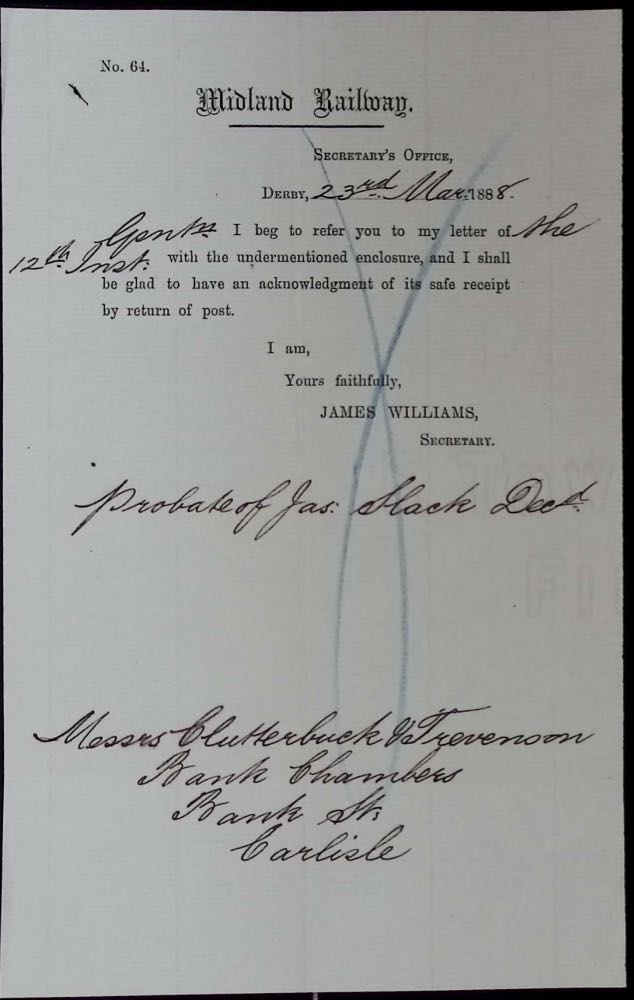 No. 64.
Midland Railway.
SECRETARY'S OFFICE,
DERBY, 23rd Mar. 1888.
Gentn I beg to refer you to my letter of the
12th Inst: with the undermentioned enclosure, and I shall
be glad to have an acknowledgment of its safe receipt
by return of post.
I am,
Yours faithfully,
JAMES WILLIAMS,
SECRETARY.
Probate of Jas: Slack Decd.
Messrs Clutterbuck & Trevenson
Bank Chambers
Bank St.
Carlisle